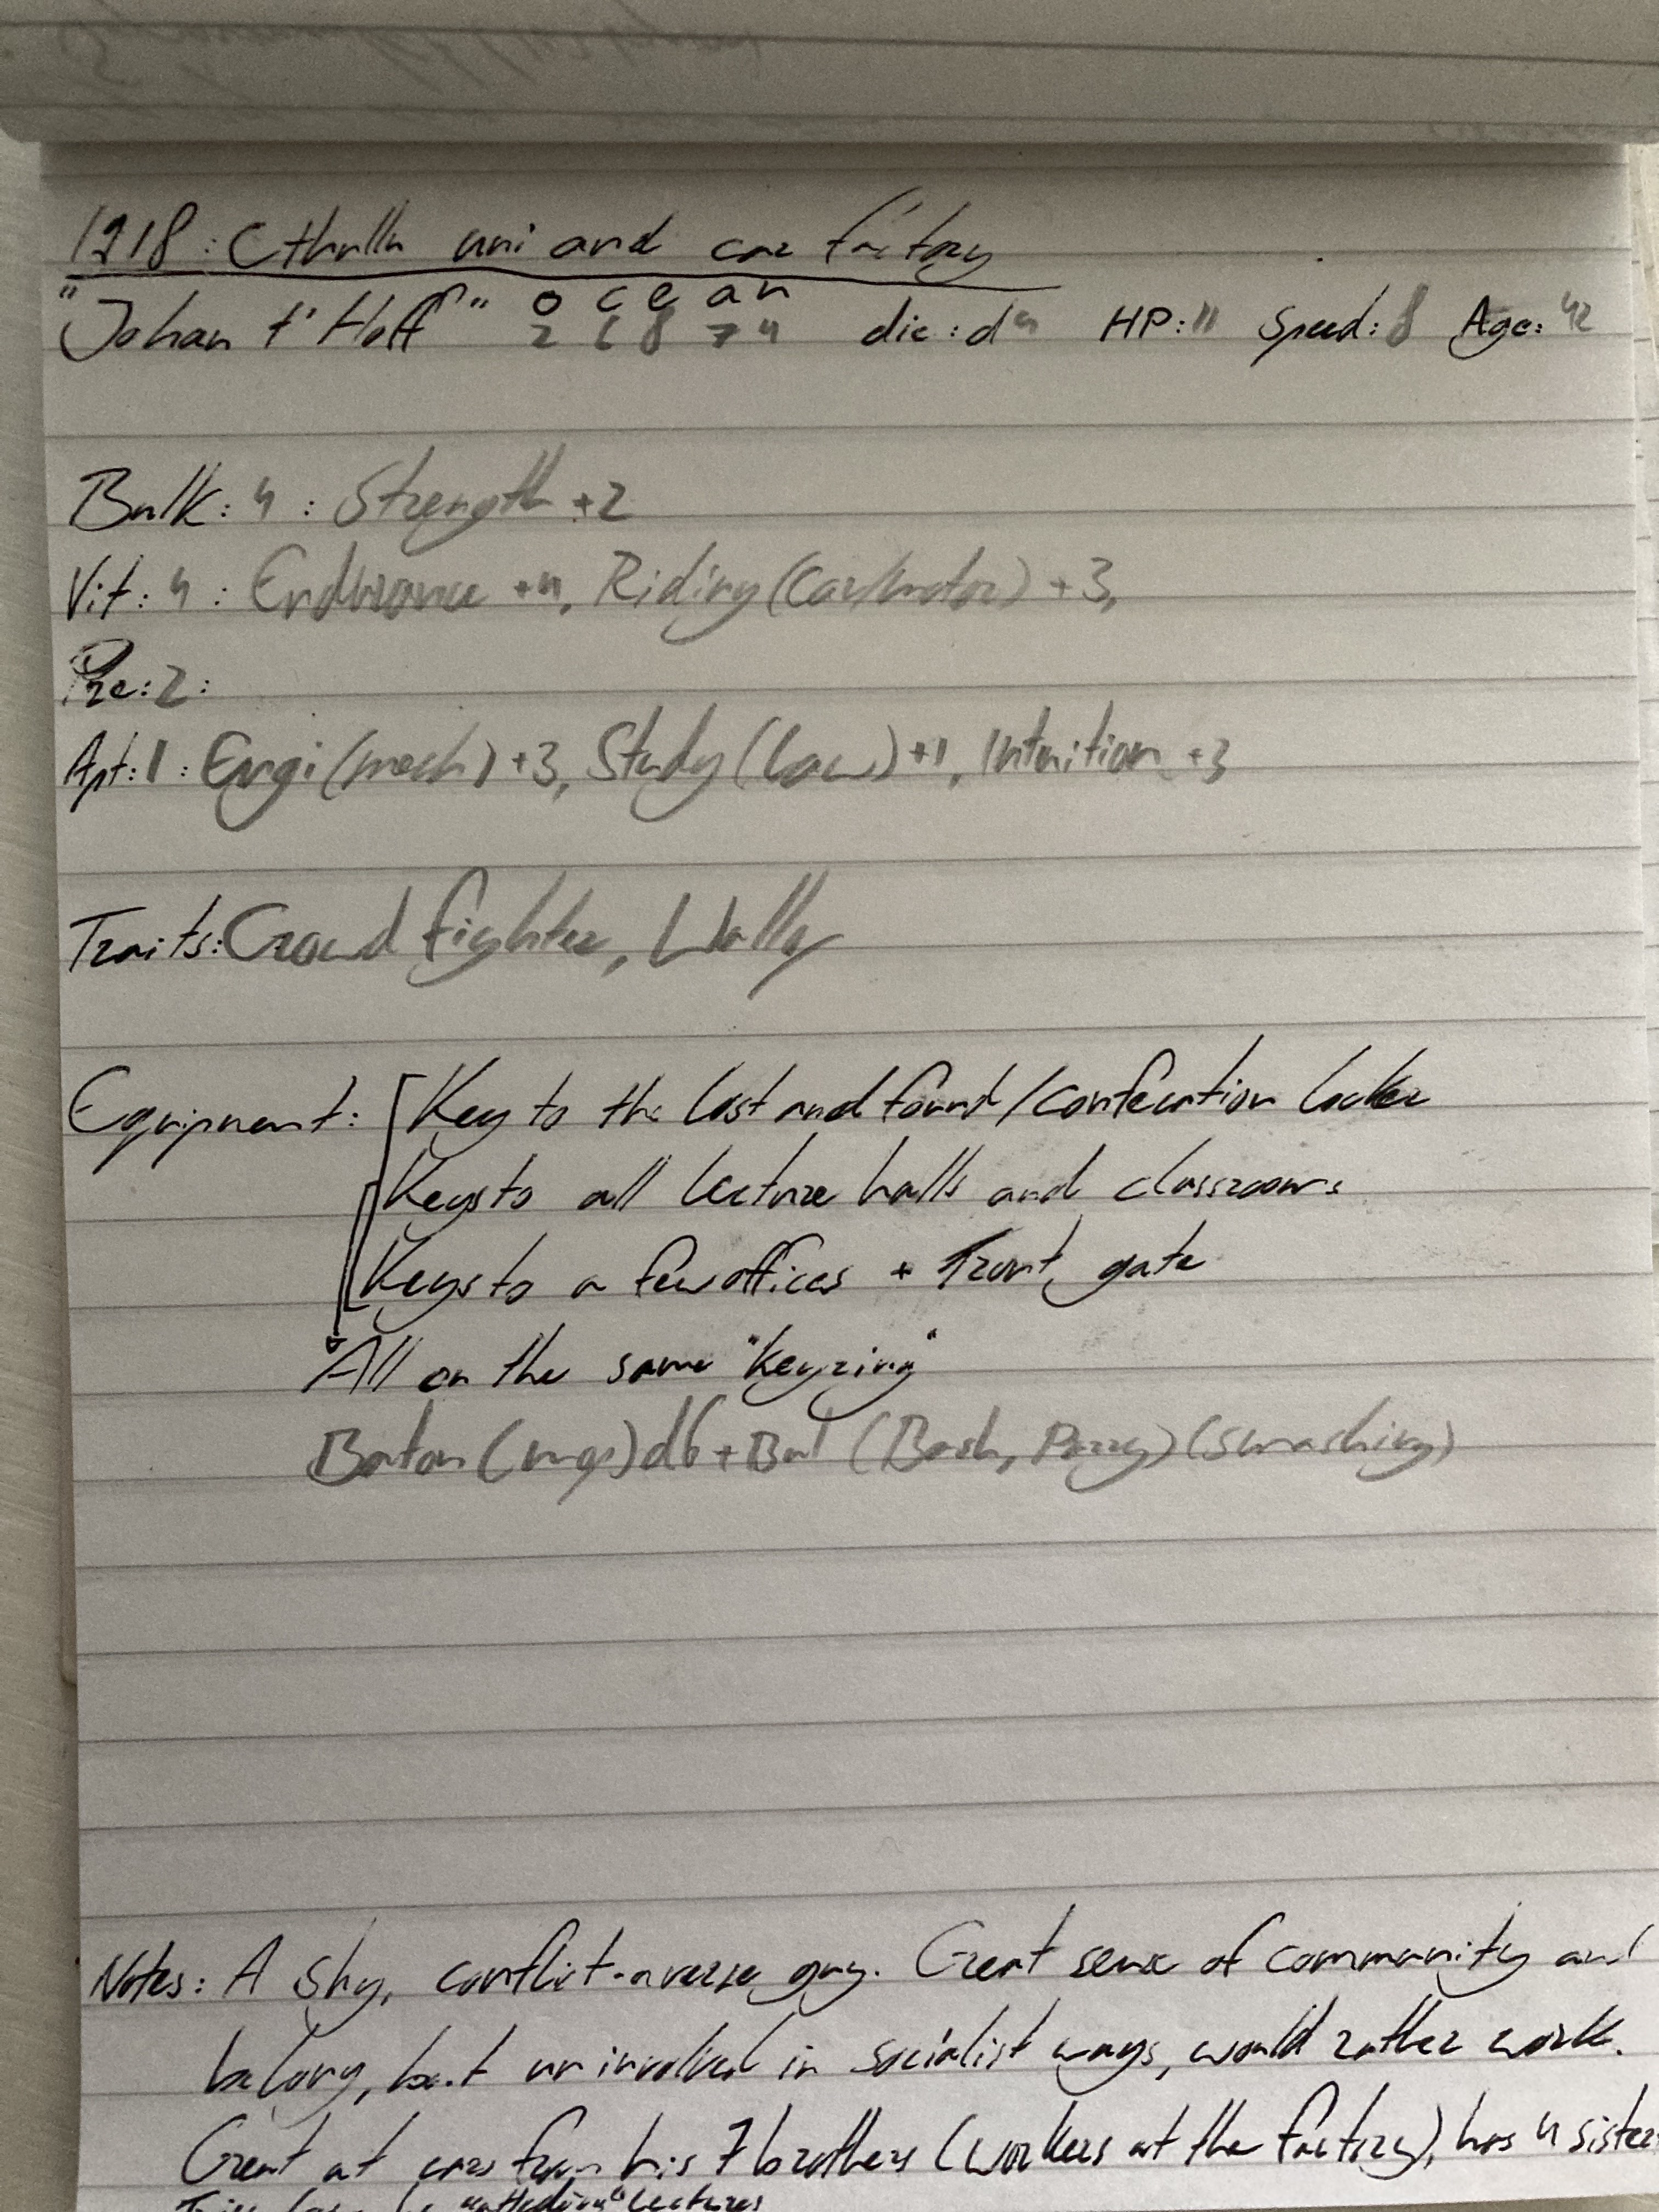 1918: Cthullu uni and car factory
"Johan t' Hoff" o c e a n
2 6 8 7 4 die: d4 HP: 11 Speed: 8 Age: 42
Bulk: 4 : Strength +2
Vit: 4 : Endurance +4, Riding (Car/motor) +3,
Pre: 2:
Apt: 1 : Engi (mech) +3, Study (law) +1, Intuition +3
Traits: Crowd fighter, Wally
Equipment: Key to the lost and found / locker
Keys to all lecture halls and classrooms
Keys to a few offices + Front gate
All on the same "keyring"
Baton (mgs) d6 + Bul (Bash, Parry) (smashing)
Notes: A shy, conflict-averse guy. Great sense of community and
belong, but uninvolved in socialist ways, would rather work.
Great at cars from his 7 brothers (workers at the factory), has 4 sister
lectures